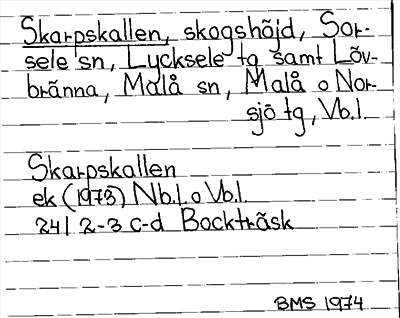 Skarpskallen, skogshöjd, Sor-
sele sn, Lycksele tg samt Löv-
bränna, Malå sn, Malå o Nor-
sjö tg, Vb.l.
Skarpskallen
ek (1973) Nb.l. o Vb.l.
24I 2-3 c-d Bockträsk
BMS 1974